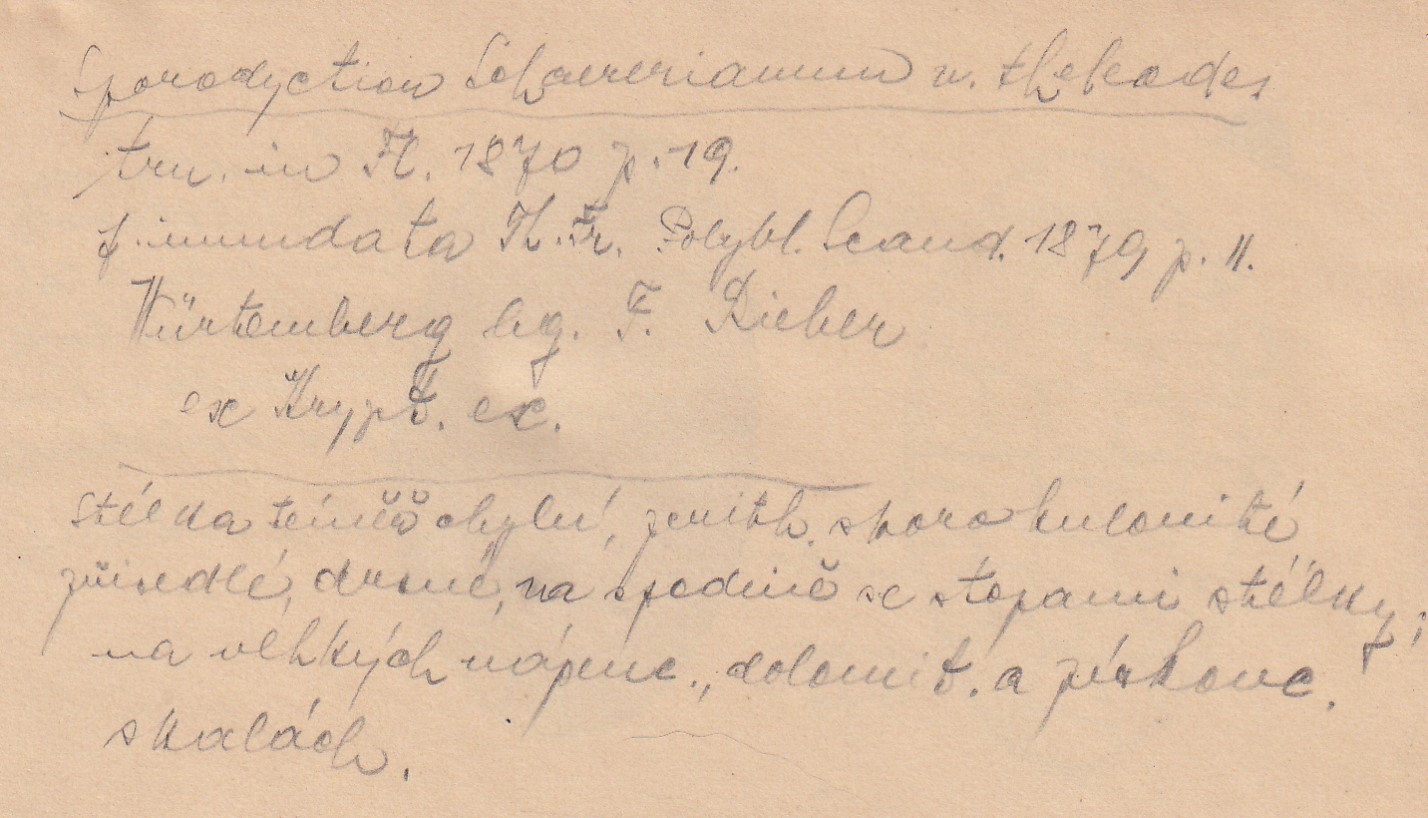 Sporodyction Schaererianum v. thelodes
trn. in Fl. 1870 p. 19.
f. inundata Th. Fr. Polybl. Scand. 1879 p. 11.
Würtemberg lg. F. Rieber
ex Krypt. ex.
stélka téměř chybí, perith. skoro kulovité
přisedlé, drsné, na spodině se stopami stélky;
na vlhkých vápenc., dolomit. a pískovc.
skalách.